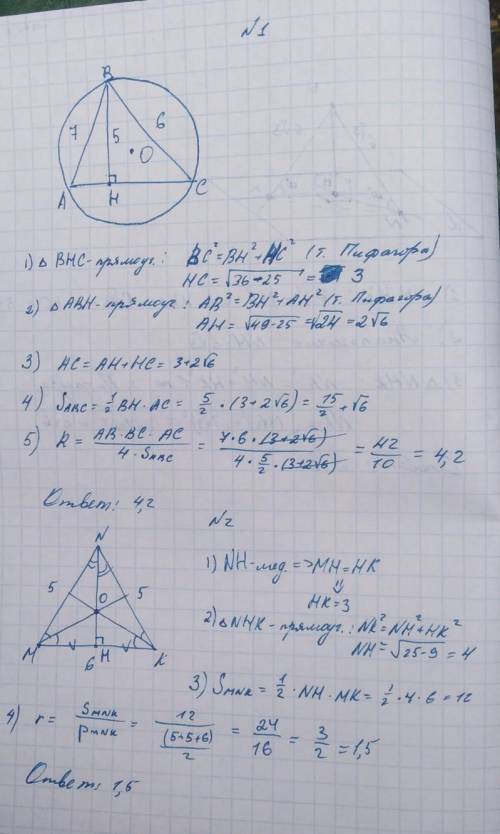 N1
B
7
5
6
O
A
H
C
1) △ BHC - прямоуг.: BC² = BH² + HC² (т. Пифагора)
HC = √36-25 = 3
2) △ ABH - прямоуг.: AB² = BH² + AH² (т. Пифагора)
AH = √49-25 = √24 = 2√6
3) AC = AH + HC = 3+2√6
4) S_ABC = 1/2 BH · AC = 5/2 · (3+2√6) = 15/2 + √6
5) R = AB · BC · AC / 4 · S_ABC = 7·6·(3+2√6) / 4 · 5/2 · (3+2√6) = 42/10 = 4,2
Ответ: 4,2
N2
N
5
O
5
M
6
H
K
1) NH - мед. => MH = HK
⇓
HK = 3
2) △ NHK - прямоуг.: NK² = NH² + HK²
NH = √25-9 = 4
3) S_MNK = 1/2 · NH · MK = 1/2 · 4 · 6 = 12
4) r = S_MNK / P_MNK = 12 / (5+5+6)/2 = 24/16 = 3/2 = 1,5
Ответ: 1,5